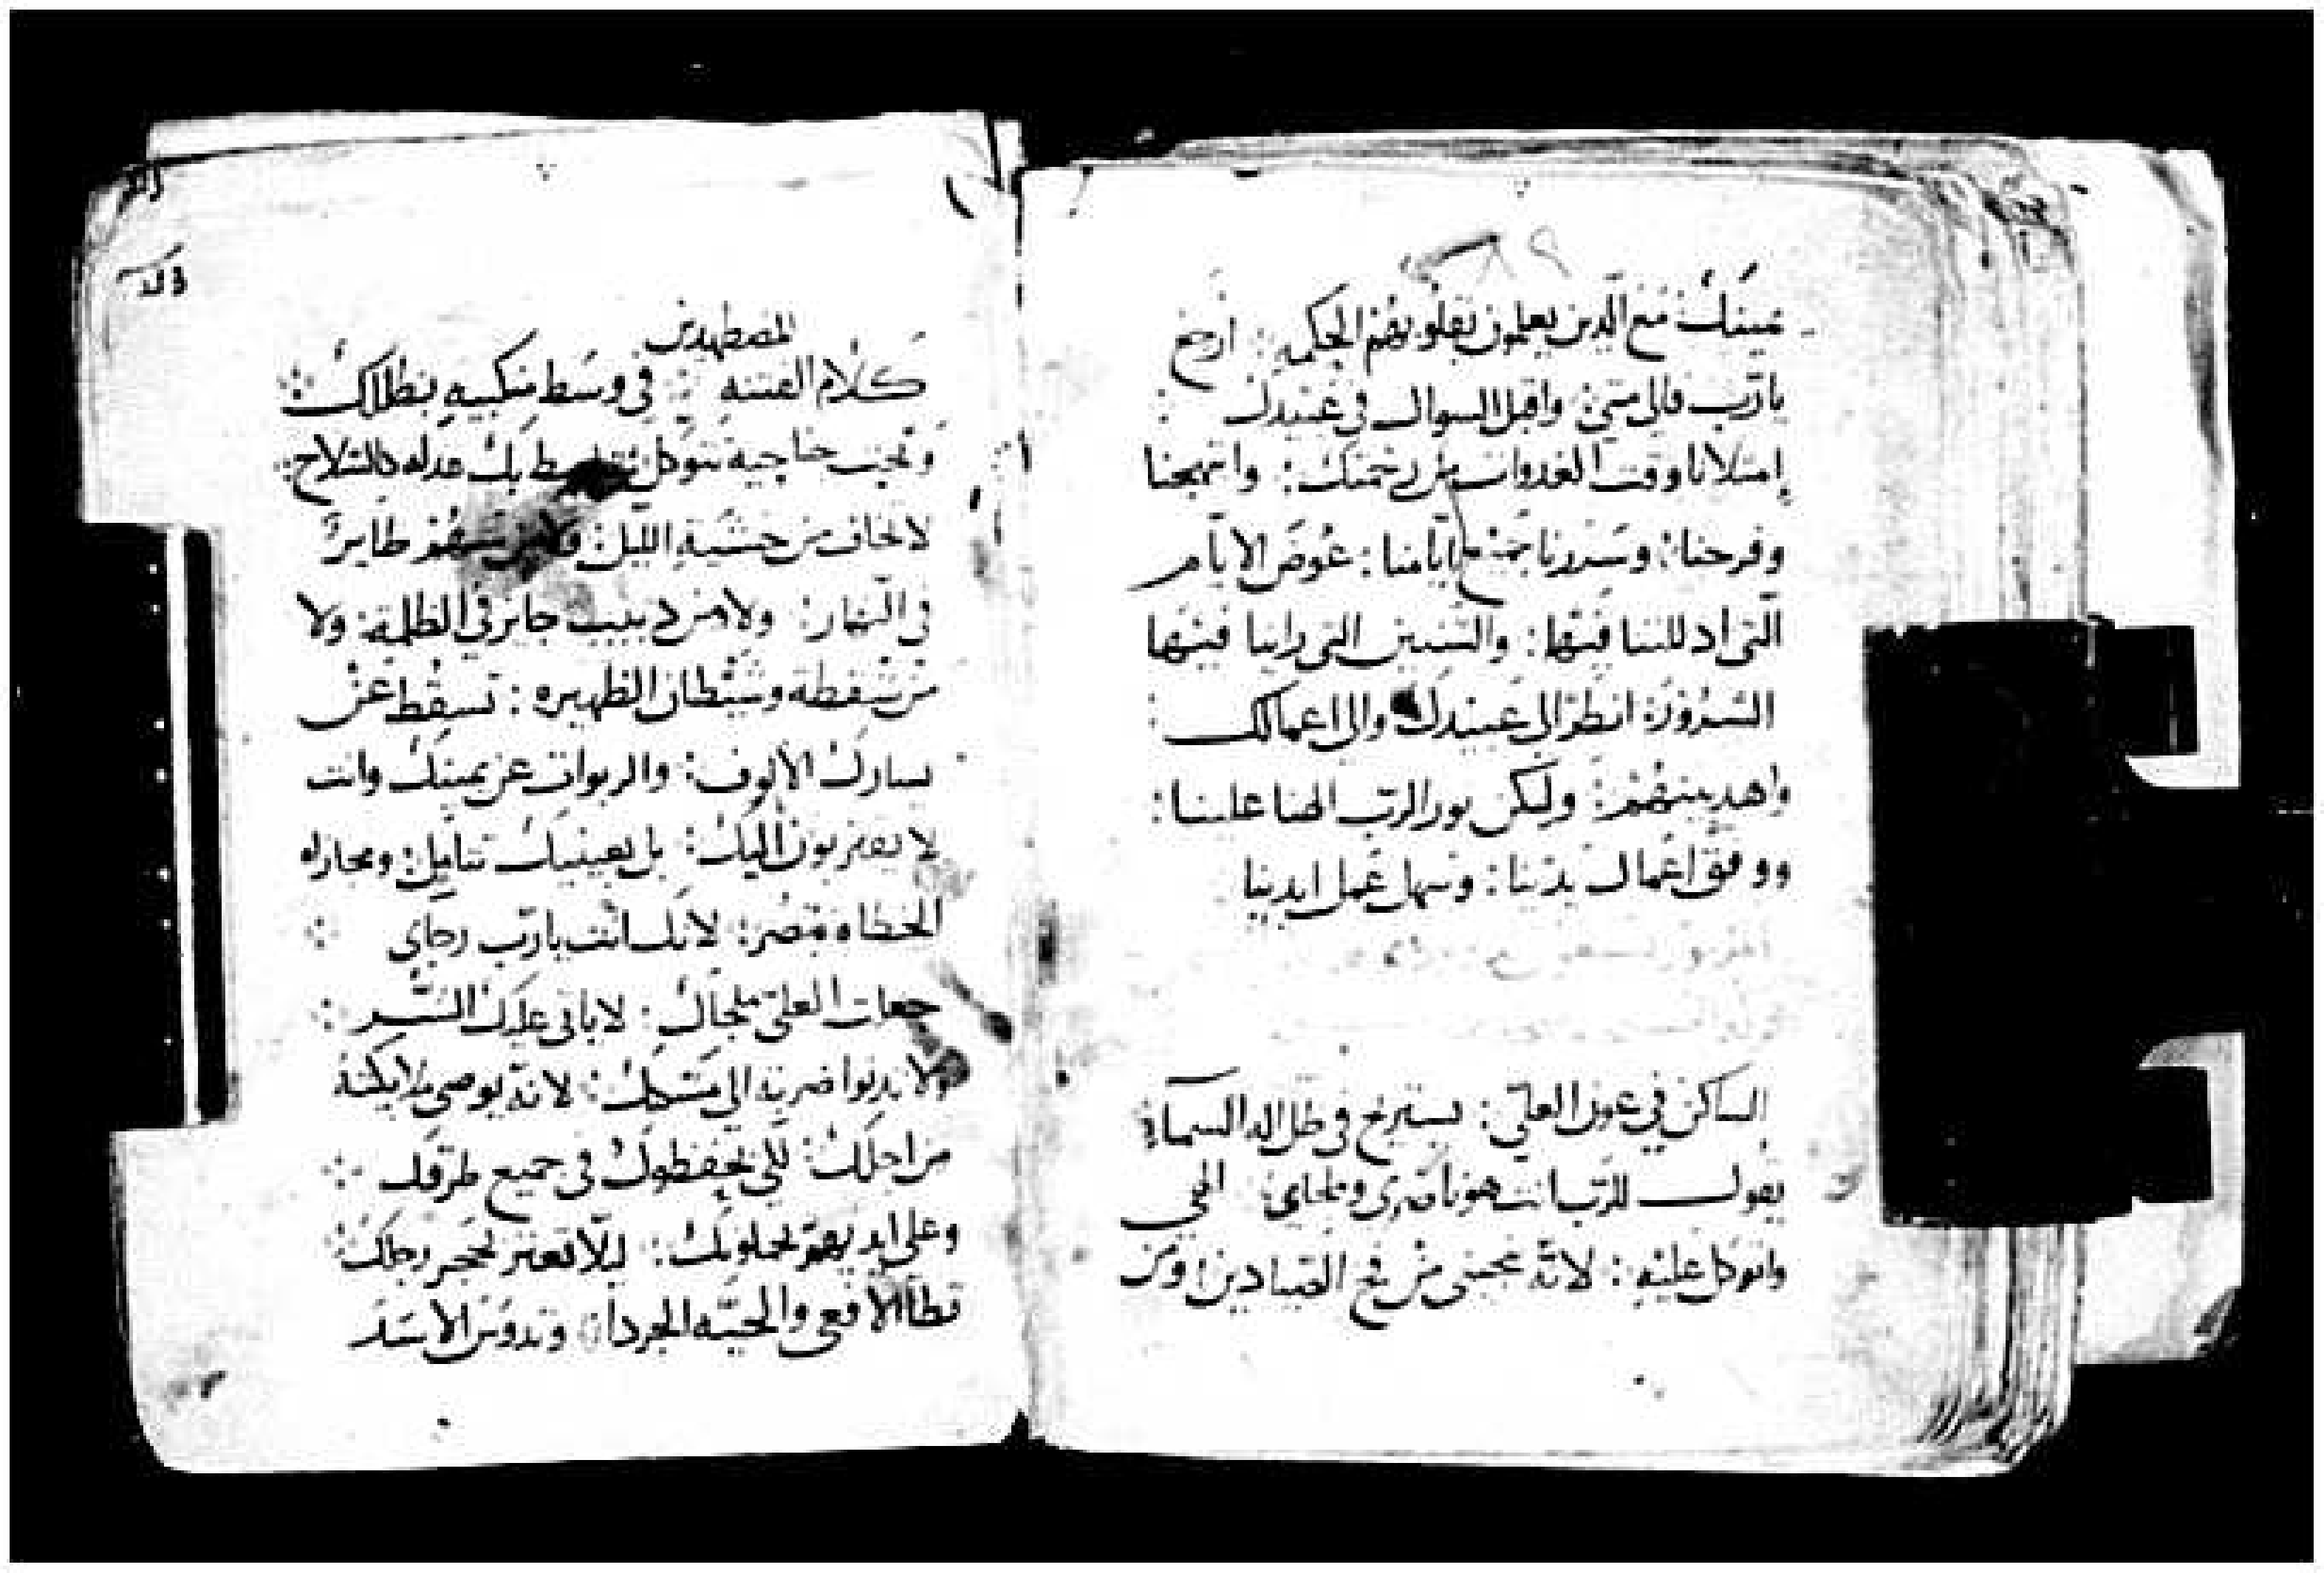 يمينك مع الذين يعلمون بقلوبهم الحكمه: ارجع
يا رّب فالى متى: واقبل السوال في عبيدك :
إمتلانا وقت الغدوات من رحمتك: وابتهجنا
وفرحنا: وسررنا بجميع ايّامنا: عوض الايّام
الّتى ادللتنا فيها: والسنين التى راينا فيها
الشرور: انظر الى عبيدك والى اعمالك :
واهد بينهم: وليكن نور الرّب الهنا علينا:
ووفق اعمال يدينا: وسهل عمل ايدينا
الساكن في عون العلّي: يستريح في ظل اله السماء:
يقول للرّب انت هو ناصرى وملجاى: الهي
واتوكل عليه: لانّه ينجينى من فخ الصيادين: ومن
المضطهدين
كلام الفتنه : في وسط منكبيه يظلّك:
وتحت جناحيه تتوكل: تحيط بك عدله كالسّلاح:
لا تخاف من خشية اللّيل: ولا من سهم طاير
في النّهار: ولا من دبيب جايز في الظلمة: ولا
من سقطة وشيطان الظهيره: تسقط عن
يسارك الالوف: والربوات عن يمينك وانت
لا يقتربون اليك: بل بعينيك تتامل: ومجازاه
الخطاه تبصر: لانّك انت يا رّب رجاى
جعلت العلّي ملجاك: لا ياتى عليك الشّر :
ولا يدنوا ضربة الى مسكنك: لانّه يوصى ملايكته
من اجلك: لكي يحفظوك فى جميع طرقك :
وعلى ايديهم يحملونك: ليلّا تعثر بحجر رجلك:
تطا الافعى والحيّه الجردان وتدوس الاسد